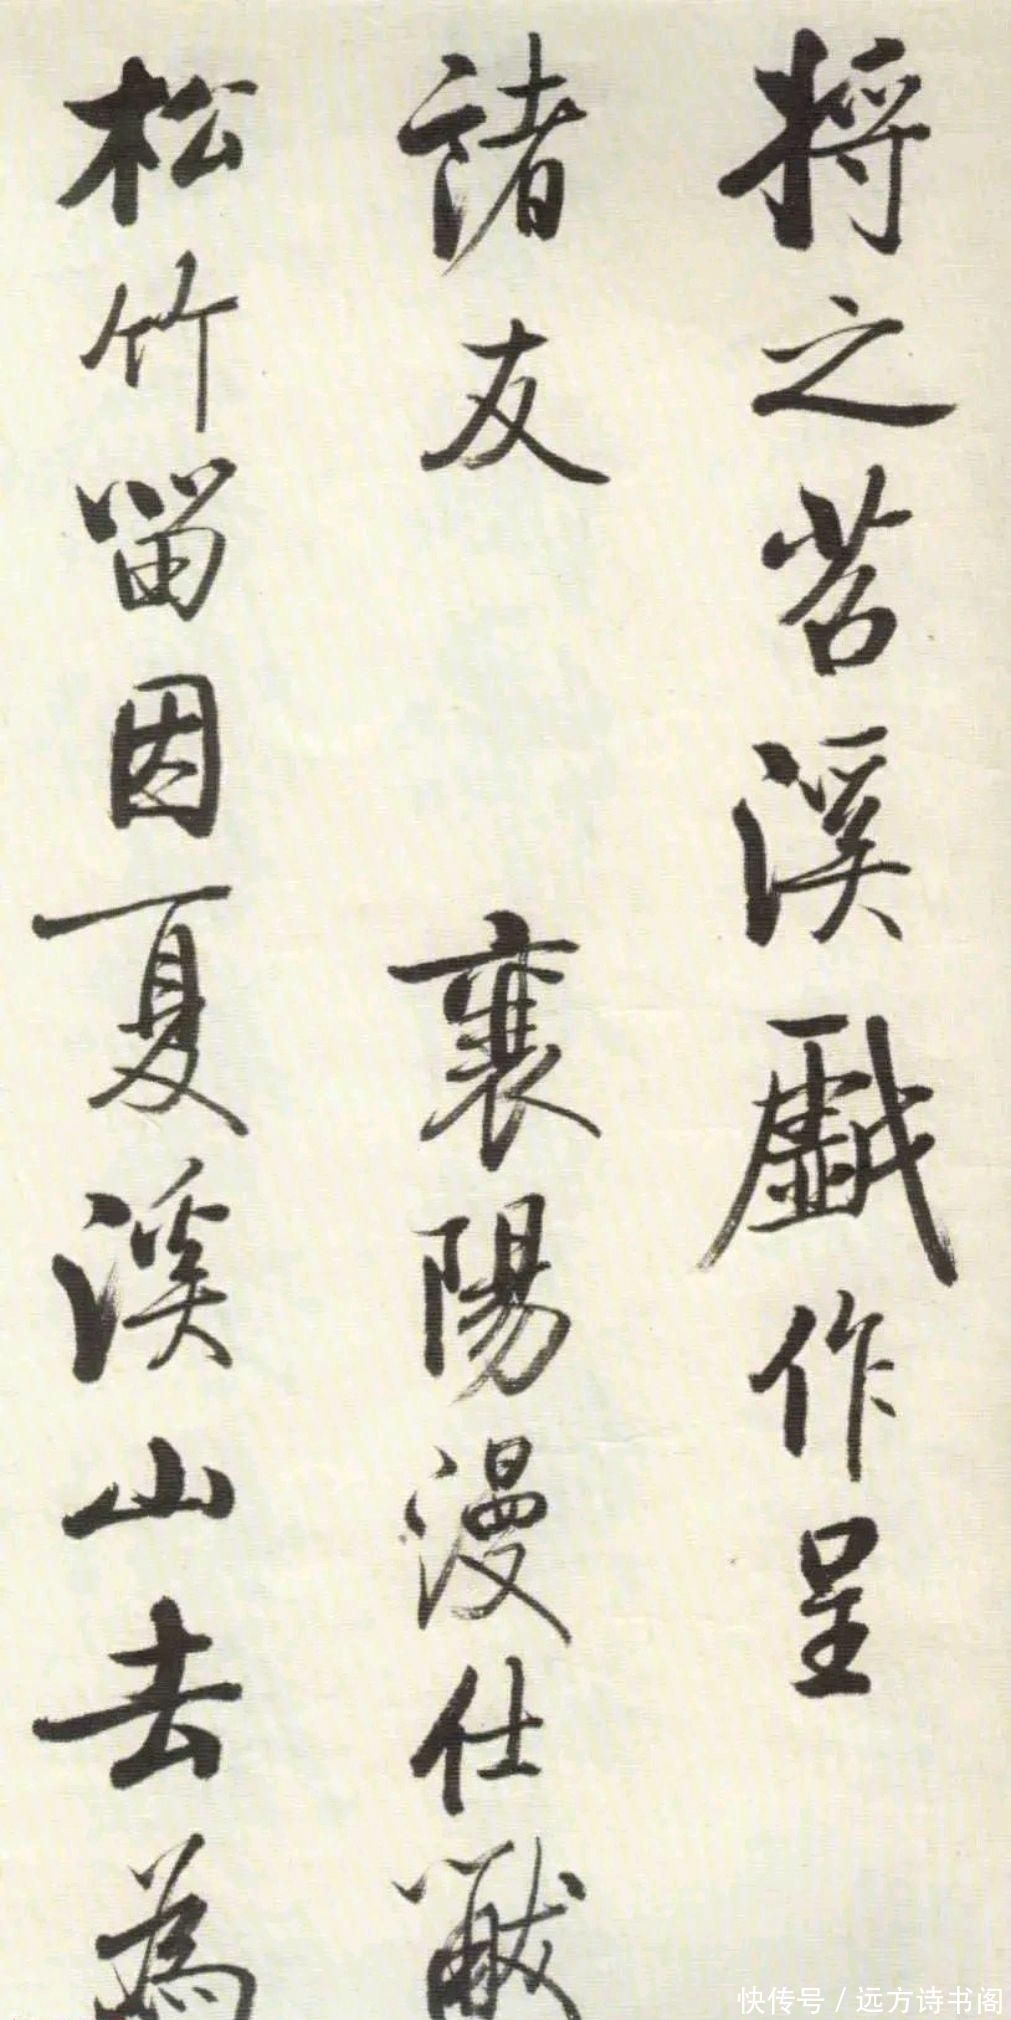 将之苕溪戲作呈
諸友　襄陽漫仕黻
松竹留因夏溪山去為
快传号 / 远方诗书阁